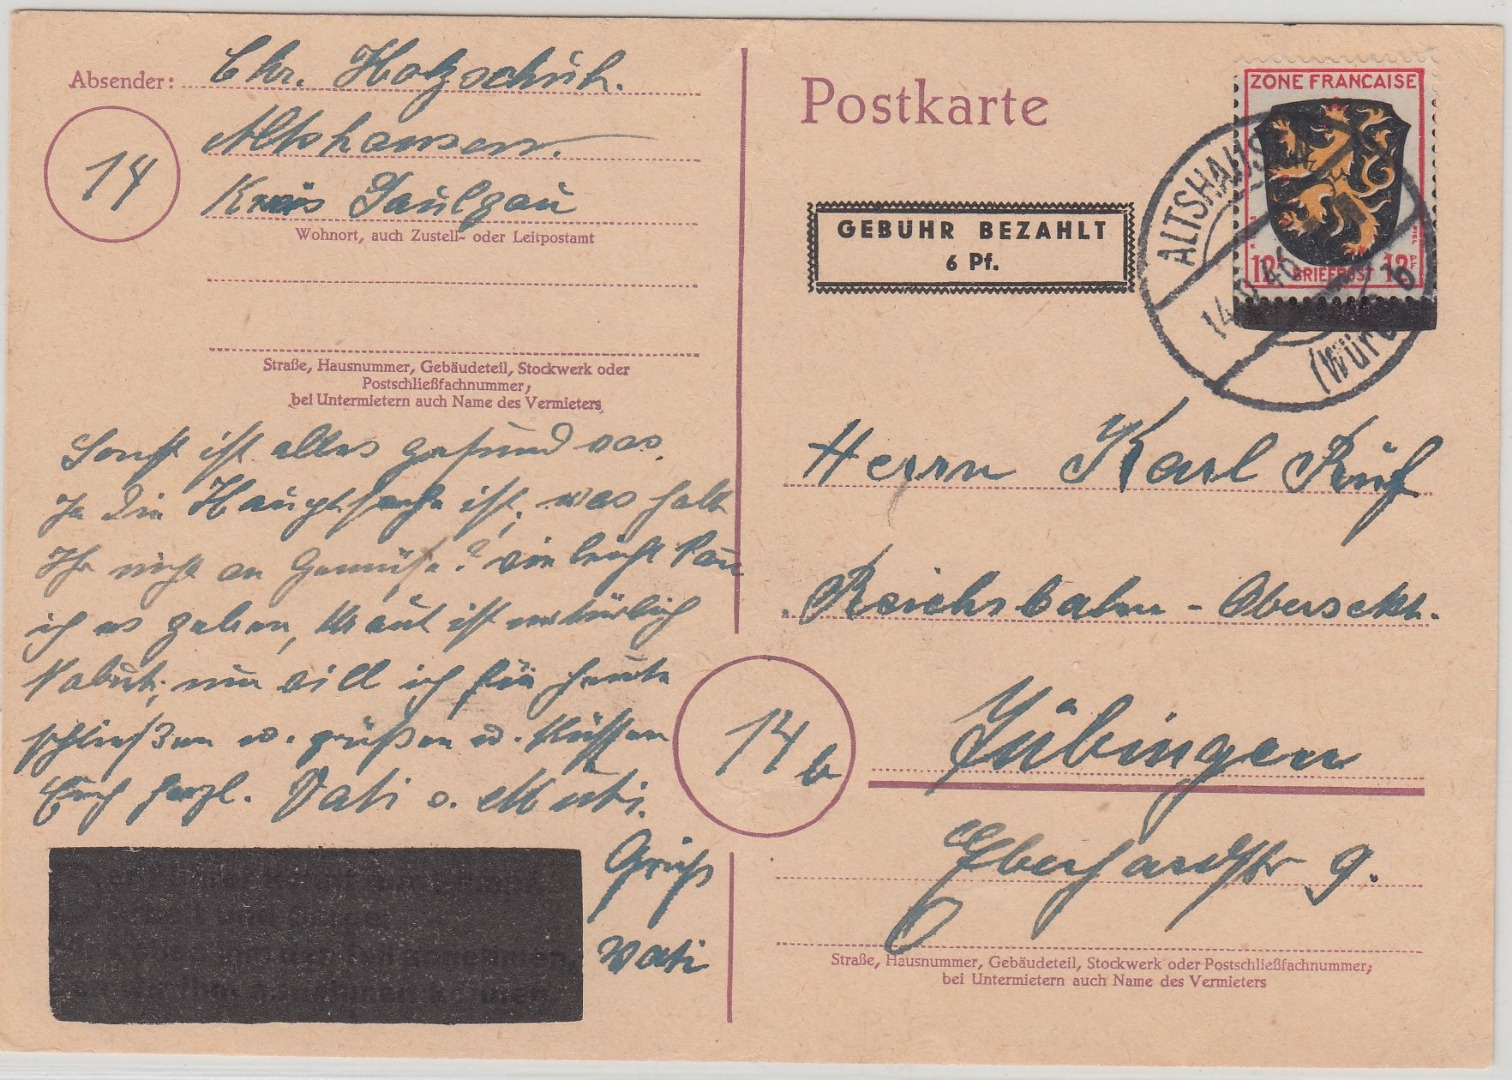 Absender: Chr. Holzschuh.
Altshausen.
14
Kreis Saulgau
Wohnort, auch Zustell- oder Leitpostamt
Straße, Hausnummer, Gebäudeteil, Stockwerk oder
Postschließfachnummer,
bei Untermietern auch Name des Vermieters
Sonst ist alles gesund was
ja die Hauptsache ist, was fehlt
Ihr nicht an Gemüse? vieleicht kan
ich es geben, Kraut ist natürlich
kaput, nun will ich für heute
schließen u. grüßen u. Küssen
Euch herzl. Vati u. Muti.
Gruß
Vati
Postkarte
GEBÜHR BEZAHLT
6 Pf.
ZONE FRANCAISE
12 BRIEFPOST 12 PF
ALTSHAUSEN
(Württ
Herrn Karl Ruf
Reichsbahn-Obersekt.
14b
Tübingen
Eberhardstr 9.
Straße, Hausnummer, Gebäudeteil, Stockwerk oder Postschließfachnummer;
bei Untermietern auch Name des Vermieters